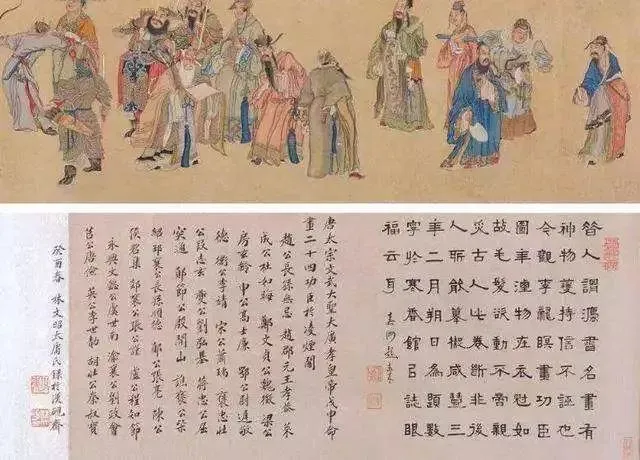 昔人謂灋書名畫有
神物護持信不誣也
今觀李龍眠畫功臣
圖年湮物在衣冠如
故毛髮動不啻親
古人此卷斷非後
人所能摹擬咸豐三
年二月朔日為題數
字於寒香館㠯誌眼
福云耳
唐太宗文武大聖大廣孝皇帝戊申命
畫二十四功臣於凌煙閣
趙公長孫無忌 趙郡元王孝恭 萊
成公杜如晦 鄭文貞公魏徵 梁公
房玄齡 申公高士廉 鄂公尉遲敬
德 衞公李靖 宋公蕭瑀 褒忠壯
公段志玄 夔公劉弘基 蔣忠公屈
突通 鄖節公殷開山 譙襄公柴
紹 邳襄公長孫順德 鄖公張亮 陳公
侯君集 郯襄公張公謹 盧公程知節
永興文懿公虞世南 渝襄公劉政會
莒公唐儉 英公李世勣 胡壯公秦叔寶
癸酉春 林文昭 錄於漢硯齋